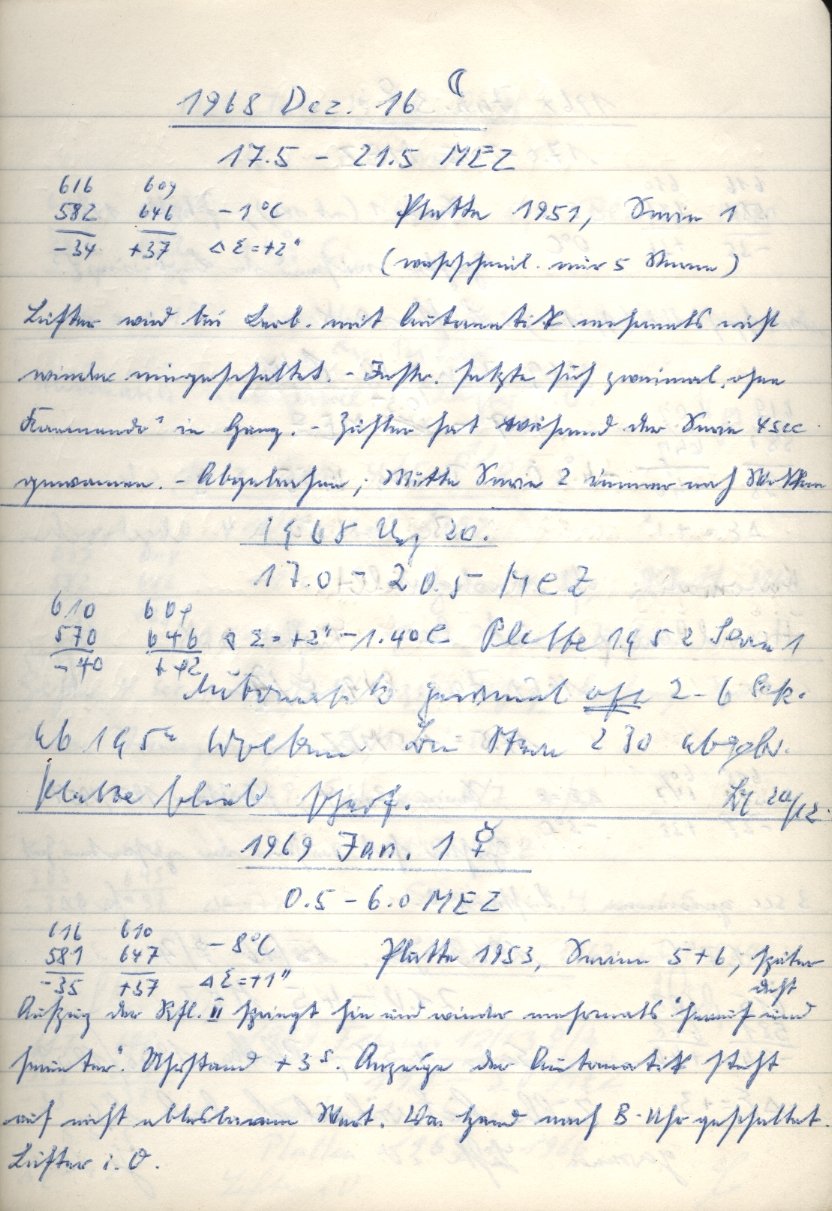 1968 Dez. 16 ☾
17.5 – 21.5 MEZ
616 609
582 646 – 1°C Platte 1951, Serie 1
–34 +37 Δ Σ = +2"
(wahrscheinl. nur 5 Sterne)
Lüfter wird bei Beob. mit Automatik mehrmals nicht
wieder eingeschaltet. – Instr. setzte sich zweimal „ohne
Kommando" in Gang. – Zähler hat während der Serie 4 sec
gewonnen. – Abgebrochen, Mitte Serie 2 immer noch Wolken
1968 Dez 20.
17.0 – 20.5 MEZ
610 604
570 646 Δ Σ = +2" – 1.4°C Platte 1952 Serie 1
–40 +42
Automatik gewinnt oft 2–6 Sek.
ab 19 5 Wolken Bei Stern 230 abgebr.
Platte blieb scharf. 20/12.
1969 Jan. 1 ☿
0.5 – 6.0 MEZ
616 610
581 647 – 8°C Platte 1953, Serien 5+6, später
–35 +37 Δ Σ = +1" dicht
Aufzug der Rfl. II springt hin und wieder mehrmals "herauf und
herunter". Uhrstand +3s. Anzeige der Automatik steht
auf nicht ablesbarem Wert. Von Hand nach B-Uhr geschaltet.
Lüfter i. O.